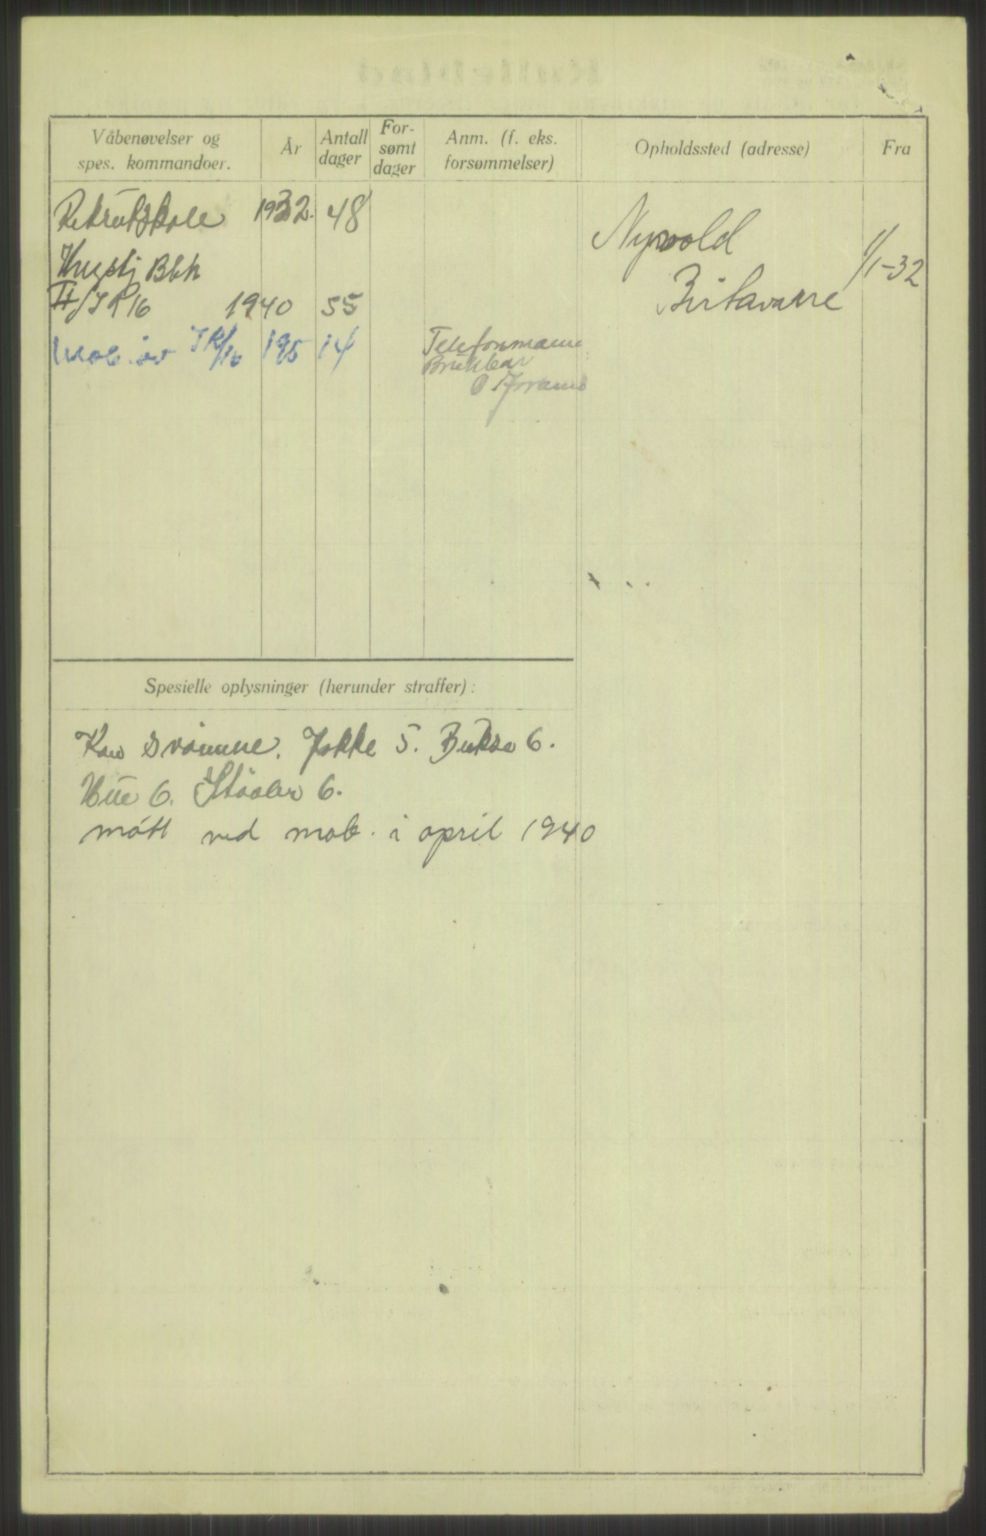 Våbenøvelser og
spes. kommandoer.
År
Antall
dager
For-
sømt
dager
Anm. (f. eks.
forsømmelser)
Opholdssted (adresse)
Fra
Rekrutskole 1932. 48
Nyvold
Birtavarre
1/1-32
Krigstj Bkk
II/IR16 1940 55
Mob. øv IR/16 195 14
Telefonmann
Brukbar
Spesielle oplysninger (herunder straffer):
Kan svømme. Jakke 5. Bukse 6.
Hue 6. Støvler 6.
møtt ved mob. i april 1940